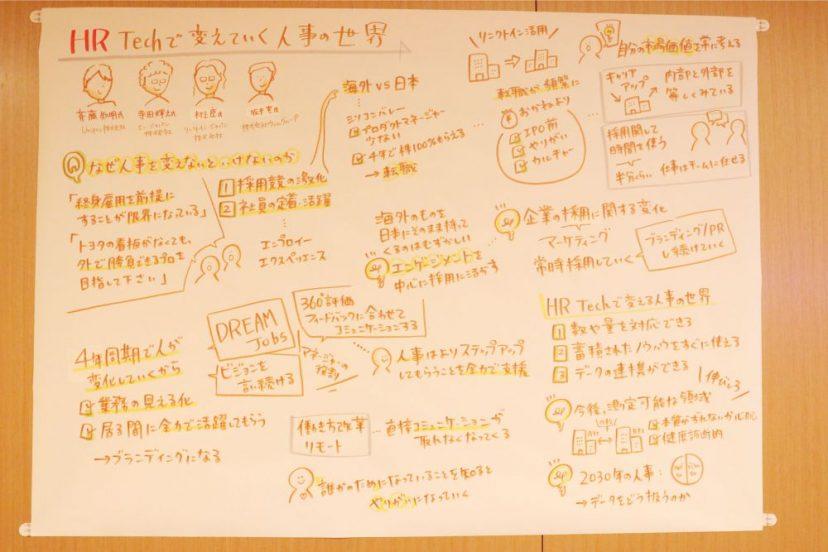 HR Techで変えていく人事の世界
なぜ人事を変えないといけないのか
「終身雇用を前提に
することが限界になっている」
「トヨタの看板がなくても、
外で勝負できるプロを
目指して下さい」
1 採用競争の激化
2 社員の定着・活躍
エンプロイー
エクスペリエンス
海外 vs 日本
シリコンバレー
プロダクトマネージャー
少ない
4年で株100%もらえる
→転職
リンクトイン活用
転職が頻繁に
おかねより
IPO前
やりがい
カルチャー
自分の市場価値を常に考える
キャリア
アップ
内部と外部を
等しくみている
採用に関して
時間を使う
半分くらい
仕事はチームに任せる
海外のものを
日本にそのまま持って
くるのはむずかしい
エンゲージメントを
中心に採用に活かす
企業の採用に関する変化
マーケティング
常時採用していく
ブランディング/PR
し続けていく
4年周期で人が
変化していくから
業務の見える化
居る間に全力で活躍してもらう
→ブランディングになる
DREAM
Jobs
ビジョンを
言い続ける
360°評価
フィードバックに合わせて
コミュニケーションする
マネージャーの
役割
人事はよりステップアップ
してもらうことを全力で支援
働き方改革
リモート
直接コミュニケーションが
取れなくなってくる
誰かのためになっていることを知ると
やりがいになっていく
HR Techで変える人事の世界
1 数や量を対応できる
2 蓄積されたノウハウをすぐに使える
3 データの連携ができる
伸びしろ
今後、測定可能な領域
健康診断的
2030年の人事:
→データをどう扱うのか